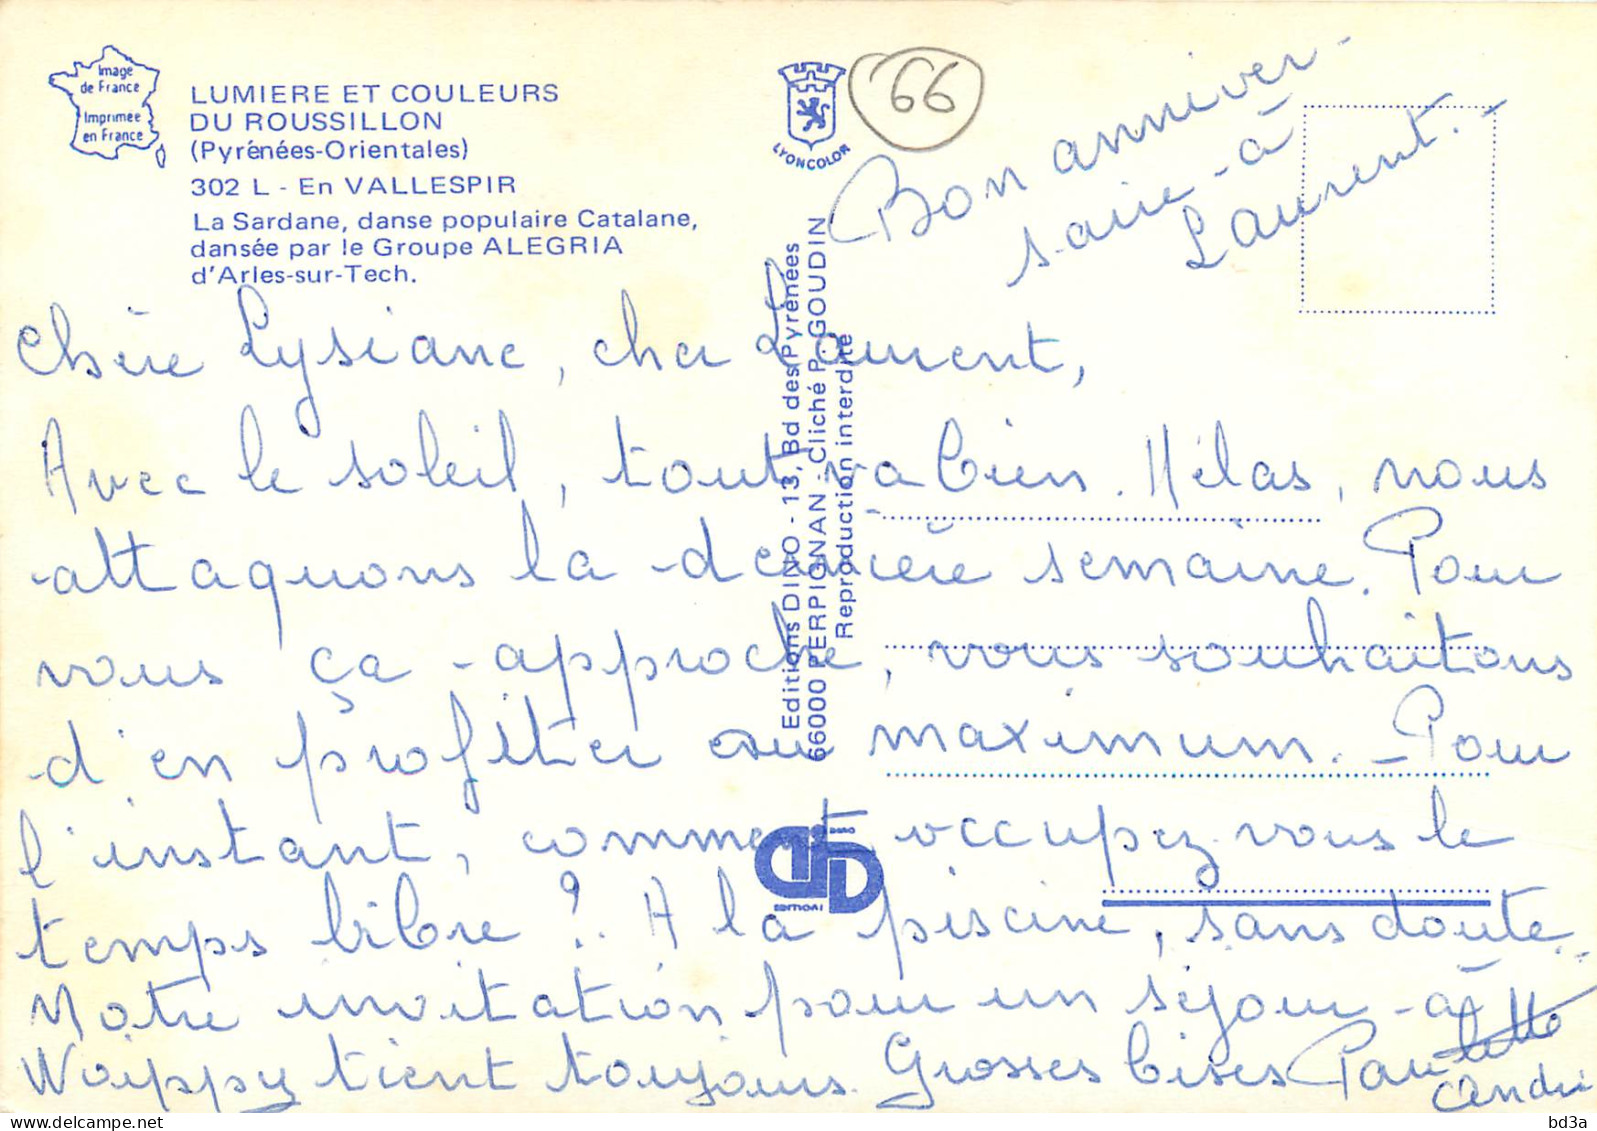 Image
de France
Imprimée
en France
LUMIERE ET COULEURS
DU ROUSSILLON
(Pyrénées-Orientales)
302 L - En VALLESPIR
La Sardane, danse populaire Catalane,
dansée par le Groupe ALEGRIA
d'Arles-sur-Tech.
LYONCOLOR
66
Bon anniver-
saire à
Laurent.
Editions DINO - 13, Bd des Pyrénées
66000 PERPIGNAN - Cliché P. GOUDIN
Reproduction interdite
EDITION
Chère Lysiane, cher Laurent,
Avec le soleil, tout va bien. Hélas, nous
attaquons la dernière semaine. Pour
vous ça approche, vous souhaitons
d'en profiter au maximum. - Pour
l'instant, comment occupez-vous le
temps libre ?. A la piscine, sans doute.
Notre invitation pour un séjour à
Woippy tient toujours. Grosses bises Paulette
André
bd3a